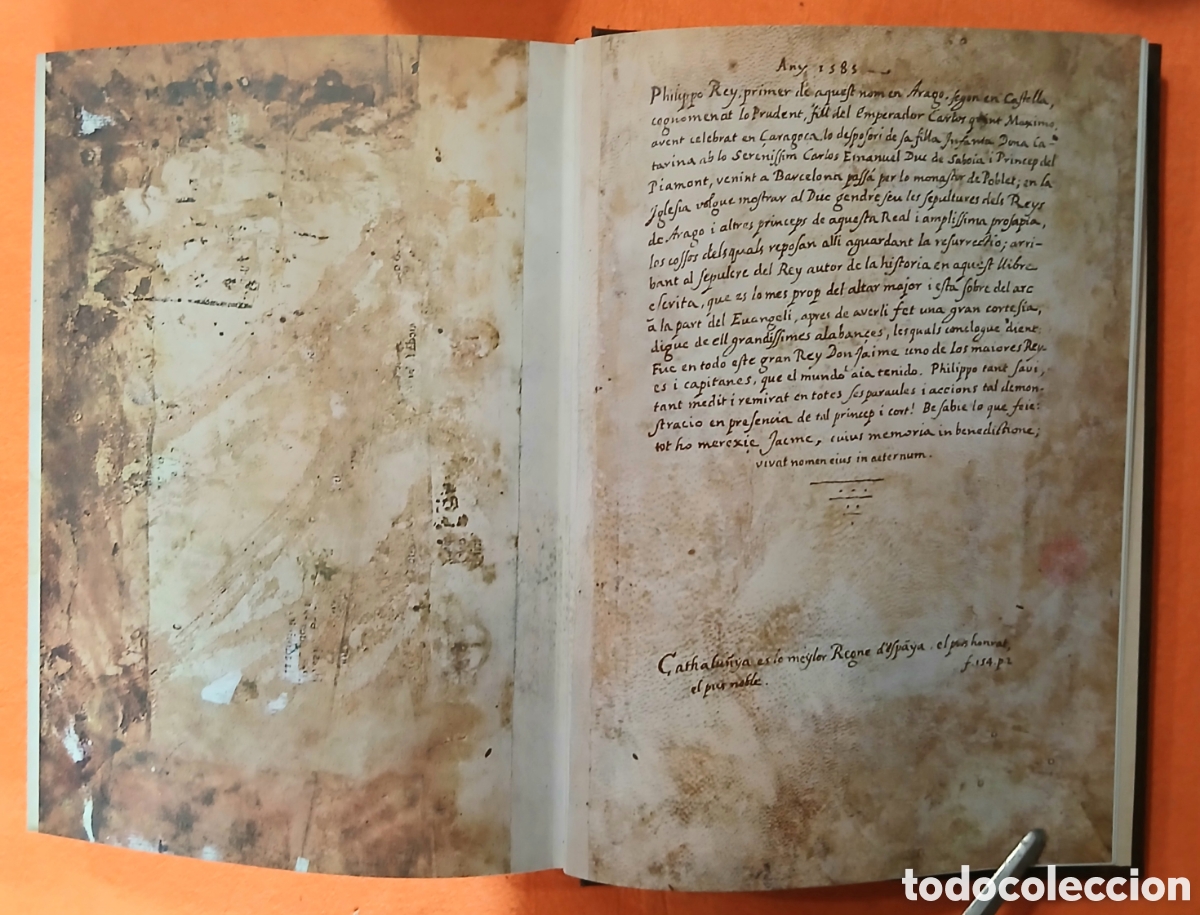 Any 1585
Philippo Rey, primer de aquest nom en Arago, segon en Castella,
cognomenat lo Prudent, fill del Emperador Carlos quint Maximo,
avent celebrat en Çaragoça lo desposori de sa filla Infanta Dona Ca-
tarina ab lo Serenissim Carlos Emanuel Duc de Saboia i Princep del
Piamont, venint a Barcelona passá per lo monastir de Poblet; en la
Iglesia volgue mostrar al Duc gendre seu les sepultures dels Reys
de Arago i altres princeps de aquesta Real i amplissima prosapia,
los cossos dels quals reposan alli aguardant la resurrectio; arri-
bant al sepulcre del Rey autor de la historia en aquest llibre
escrita, que es lo mes prop del altar major i está sobre del arc
á la part del Euangeli, apres de averli fet una gran cortesia,
digue de ell grandissimes alabançes, les quals conclogue dient:
Fue en todo este gran Rey Don Jaime uno de los maiores Rey-
es i capitanes, que el mundo aia tenido. Philippo tant savi,
tant medit i remirat en totes ses paraules i accions tal demon-
stracio en presencia de tal princep i cort! Be sabie lo que feie:
tot ho merexie Jacme, cuius memoria in benedictione;
vivat nomen eius in aeternum.
Cathaluñya es lo meylor Regne d'Espãya. el pus honrat,
el pus noble.
f. 154. p 2
todocoleccion